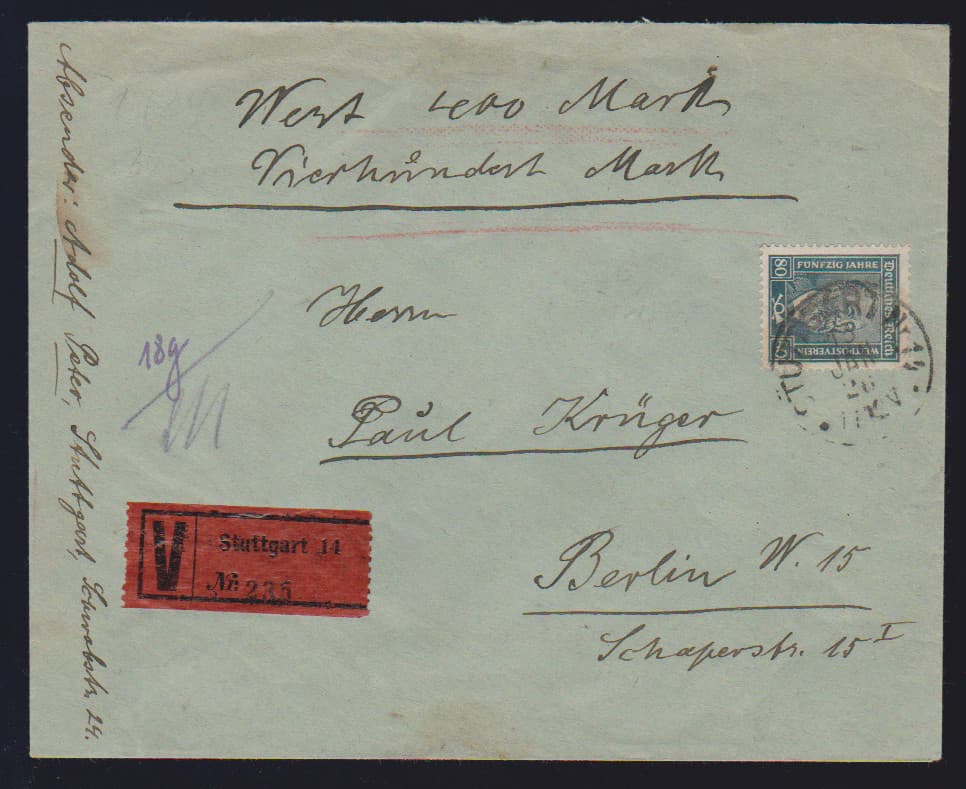 Wert 400 Mark
Vierhundert Mark
Herrn
Paul Krüger
Berlin W. 15
Schaperstr. 15 I
Absender: Adolf Peter, Stuttgart, Schwabstr. 24.
18g
V
Stuttgart 14
№ 235
Deutsches Reich
FÜNFZIG JAHRE
WELTPOSTVEREIN
80 80
STUTTGART
JAN